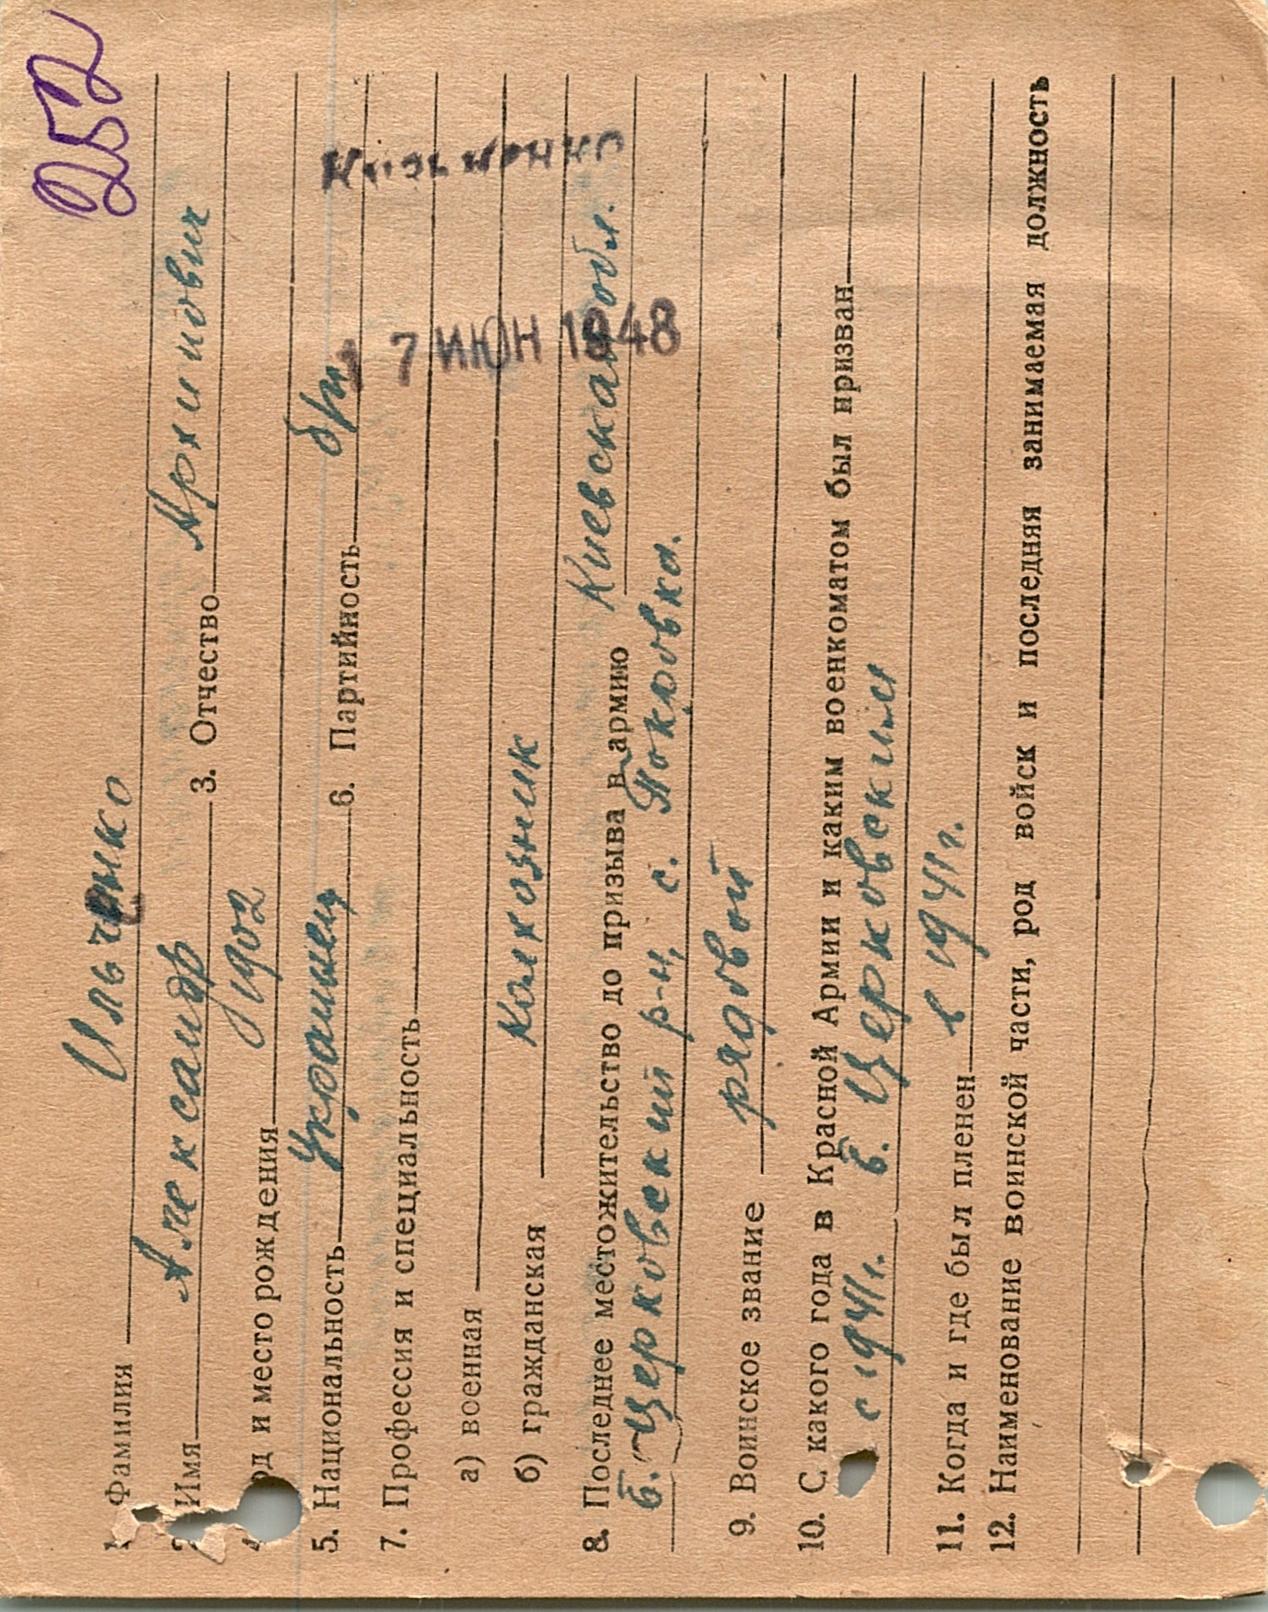 252
1 Фамилия Ильченко
2 Имя Александр 3. Отчество Архипович
4 од и место рождения 1902
5. Национальность Украинец 6. Партийность б/п
7. Профессия и специальность
17 ИЮН 1948
а) военная
б) гражданская колхозник
8. Последнее местожительство до призыва в армию Киевская обл.
б. Церковский р-н, с. Покровка.
9. Воинское звание рядовой
10. С какого года в Красной Армии и каким военкоматом был призван
с 1941 г. б. Церковским
11. Когда и где был пленен в 1941 г.
12. Наименование воинской части, род войск и последняя занимаемая должность